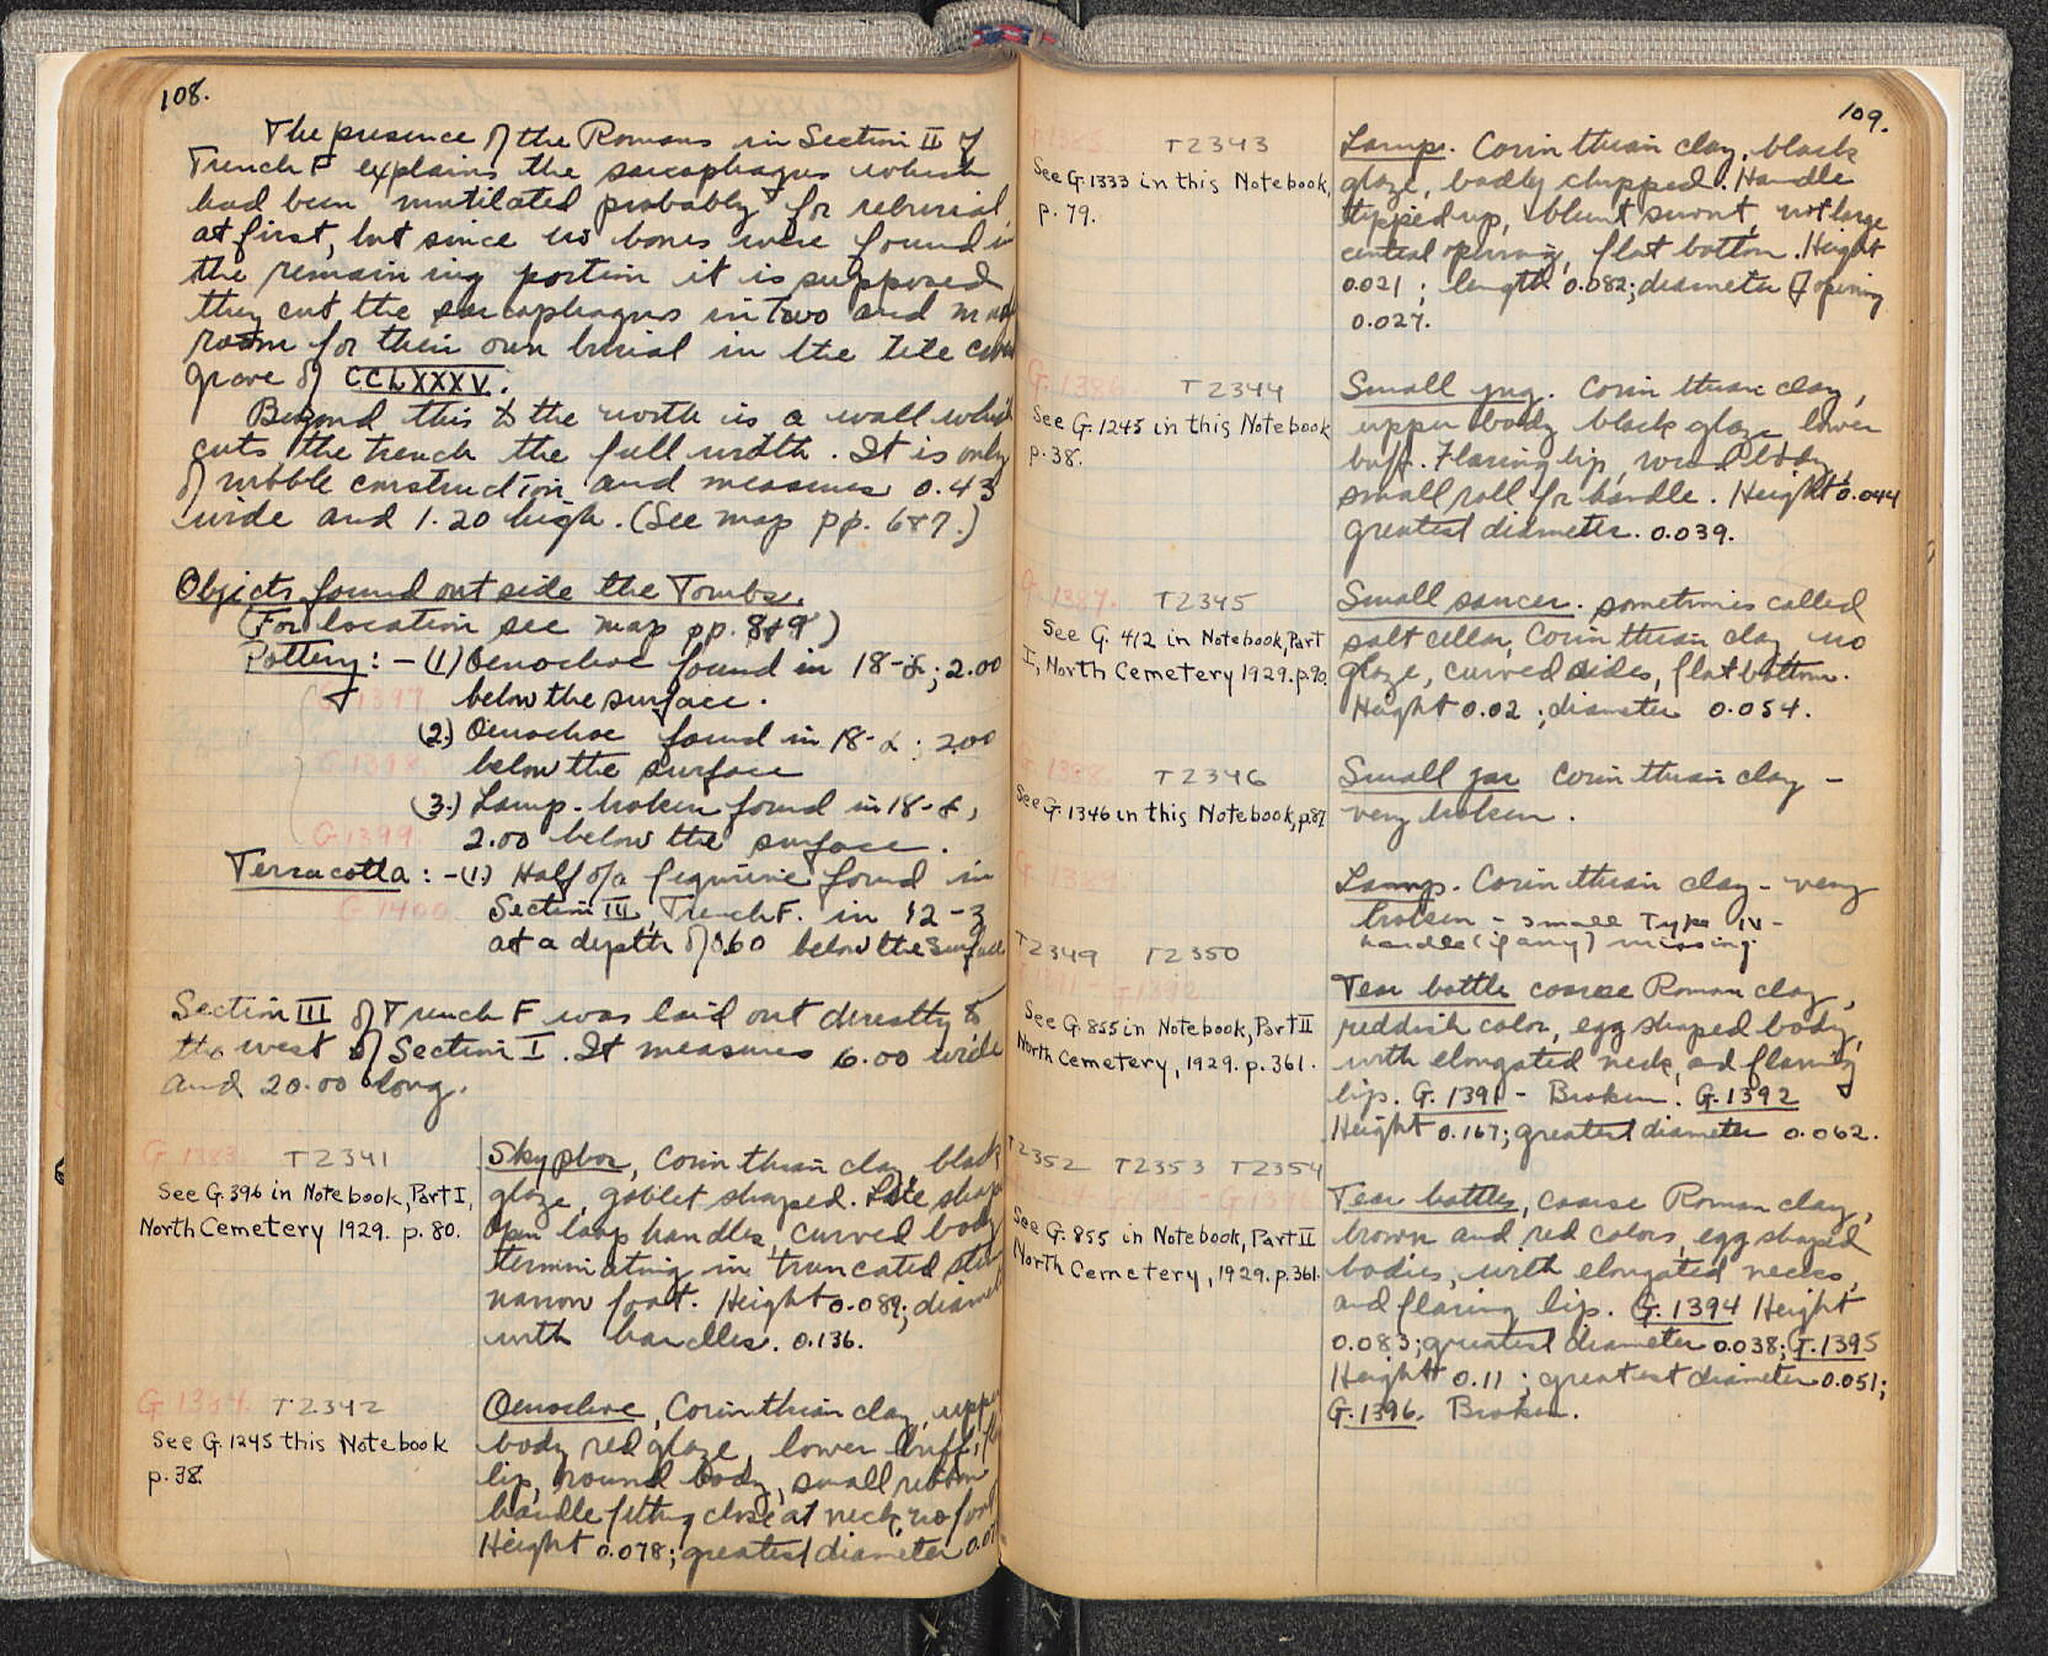 108.
The presence of the Romans in Section II of
Trench F explains the sarcophagus which
had been mutilated probably for reburial
at first, but since no bones were found in
the remaining portion it is supposed
they cut the sarcophagus in two and made
room for their own burial in the tile
grave of CCLXXXV.
Beyond this to the north is a wall which
cuts the trench the full width. It is only
of rubble construction and measures 0.43
wide and 1.20 high. (See map pp. 6&7.)
Objects found outside the Tombs.
(For location see map pp. 8&9)
Pottery: - (1) Oenochoe found in 18- ; 2.00
G 1397 below the surface.
(2.) Oenochoe found in 18- ; 2.00
G 1398 below the surface
(3.) Lamp - broken found in 18- ,
G 1399 2.00 below the surface.
Terracotta: - (1.) Half of a figurine found in
G 1400 Section III, Trench F. in 12-3
at a depth of 0.60 below the surface
Section III of Trench F was laid out directly to
the west of Section I. It measures 6.00 wide
and 20.00 long.
G 1383 T2341
See G.396 in Notebook, Part I,
North Cemetery 1929. p. 80.
Skyphos, Corinthian clay, black
glaze, goblet shaped. Late shape
open loop handles, curved body
terminating in truncated
narrow foot. Height 0.089; diameter
with handles. 0.136.
G 1384. T2342
See G.1245 this Notebook
p.38.
Oenochoe, Corinthian clay, upper
body red glaze, lower buff,
lip, round body, small ribbon
handle fitting close at neck, no foot
Height 0.078; greatest diameter
109.
G 1385 T2343
See G.1333 in this Notebook,
p. 79.
Lamp. Corinthian clay, black
glaze, badly chipped. Handle
tipped up, blunt snout, not large
central opening, flat bottom. Height
0.021; length 0.082; diameter of opening
0.027.
G. 1386 T2344
See G.1245 in this Notebook
p.38.
Small jug. Corinthian clay,
upper body black glaze, lower
buff. Flaring lip, round body,
small roll for handle. Height 0.044
greatest diameter. 0.039.
G. 1387. T2345
See G. 412 in Notebook, Part
I, North Cemetery 1929. p.90.
Small saucer. sometimes called
salt cellar, Corinthian clay, no
glaze, curved sides, flat bottom.
Height 0.02; diameter 0.054.
G 1388 T2346
See G.1346 in this Notebook, p.87.
Small jar Corinthian clay -
very broken.
G 1389
Lamp. Corinthian clay - very
broken - small Type IV -
handle (if any) missing.
T2349 T2350
G 1391 - G 1392
See G.855 in Notebook, Part II
North Cemetery, 1929. p.361.
Tear bottle coarse Roman clay,
reddish color, egg shaped body,
with elongated neck, and flaring
lip. G. 1391 - Broken. G. 1392
Height 0.167; greatest diameter 0.062.
T2352 T2353 T2354
G 1396
See G. 855 in Notebook, Part II
North Cemetery, 1929. p.361.
Tear bottles, coarse Roman clay,
brown and red colors, egg shaped
bodies, with elongated necks,
and flaring lip. G. 1394 Height
0.083; greatest diameter 0.038; G.1395
Height 0.11; greatest diameter 0.051;
G.1396. Broken.